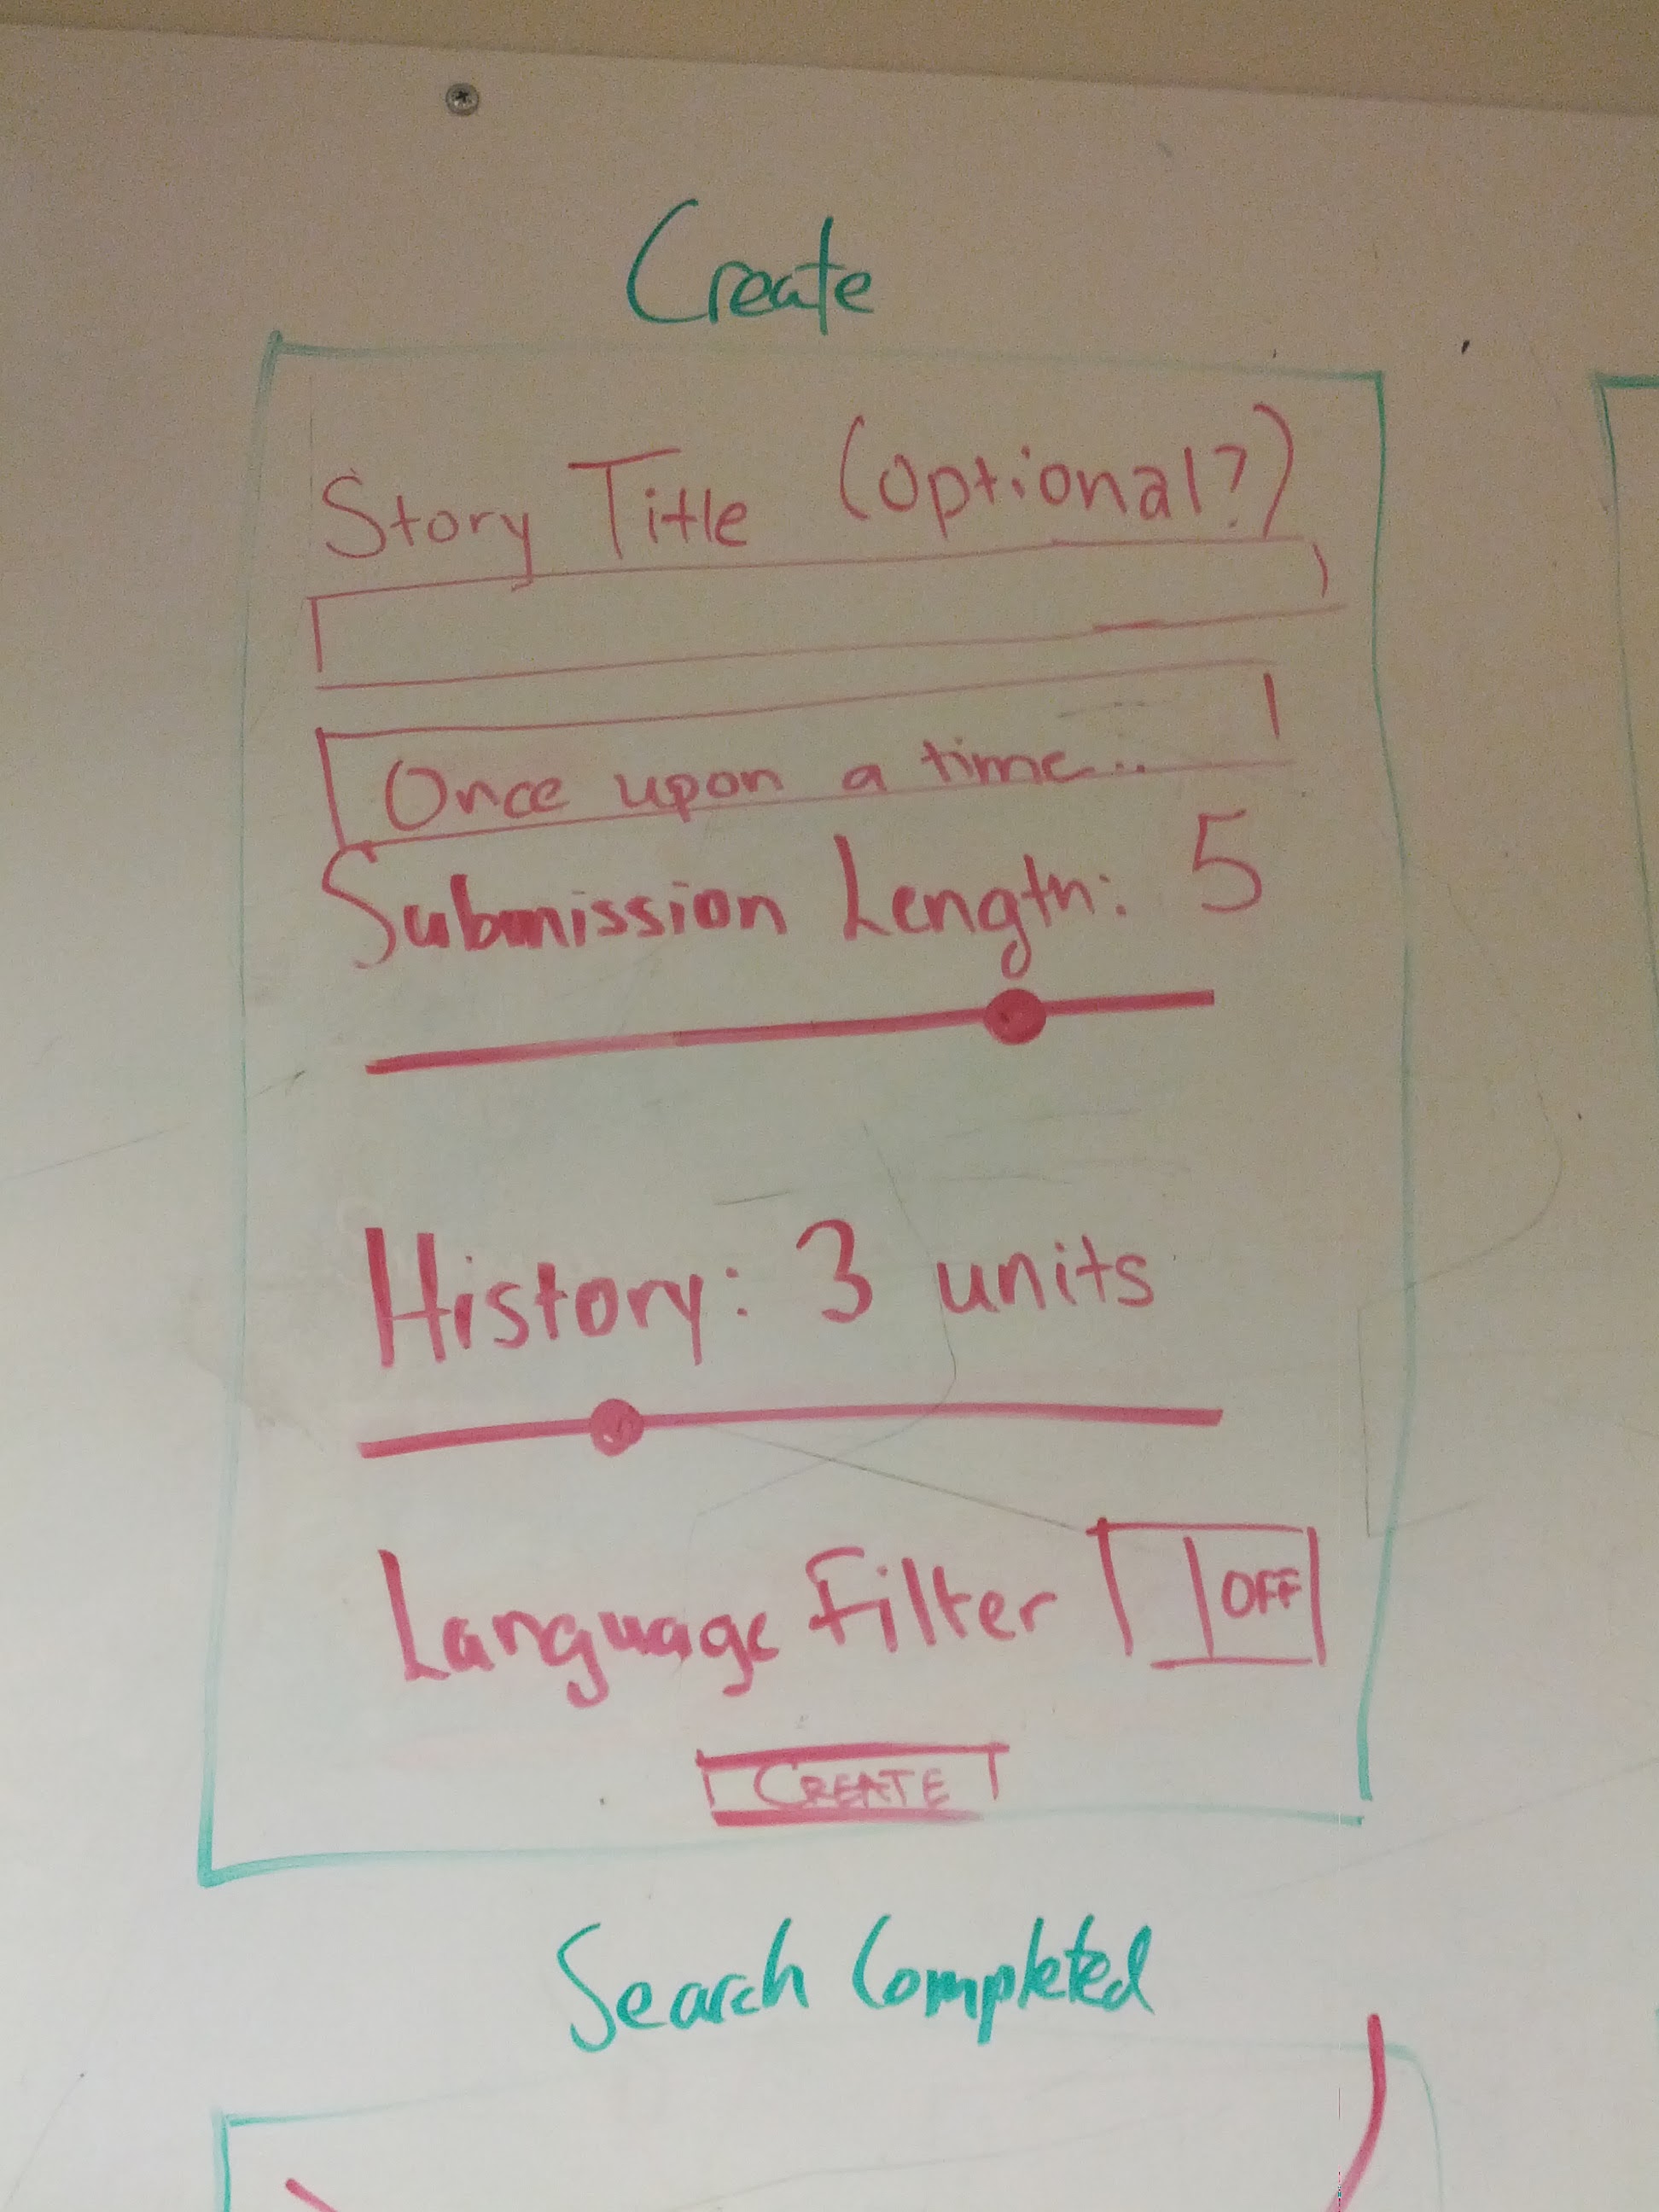 Create
Story Title (optional?)
Once upon a time...
Submission Length: 5
History: 3 units
Language Filter OFF
CREATE
Search Completed